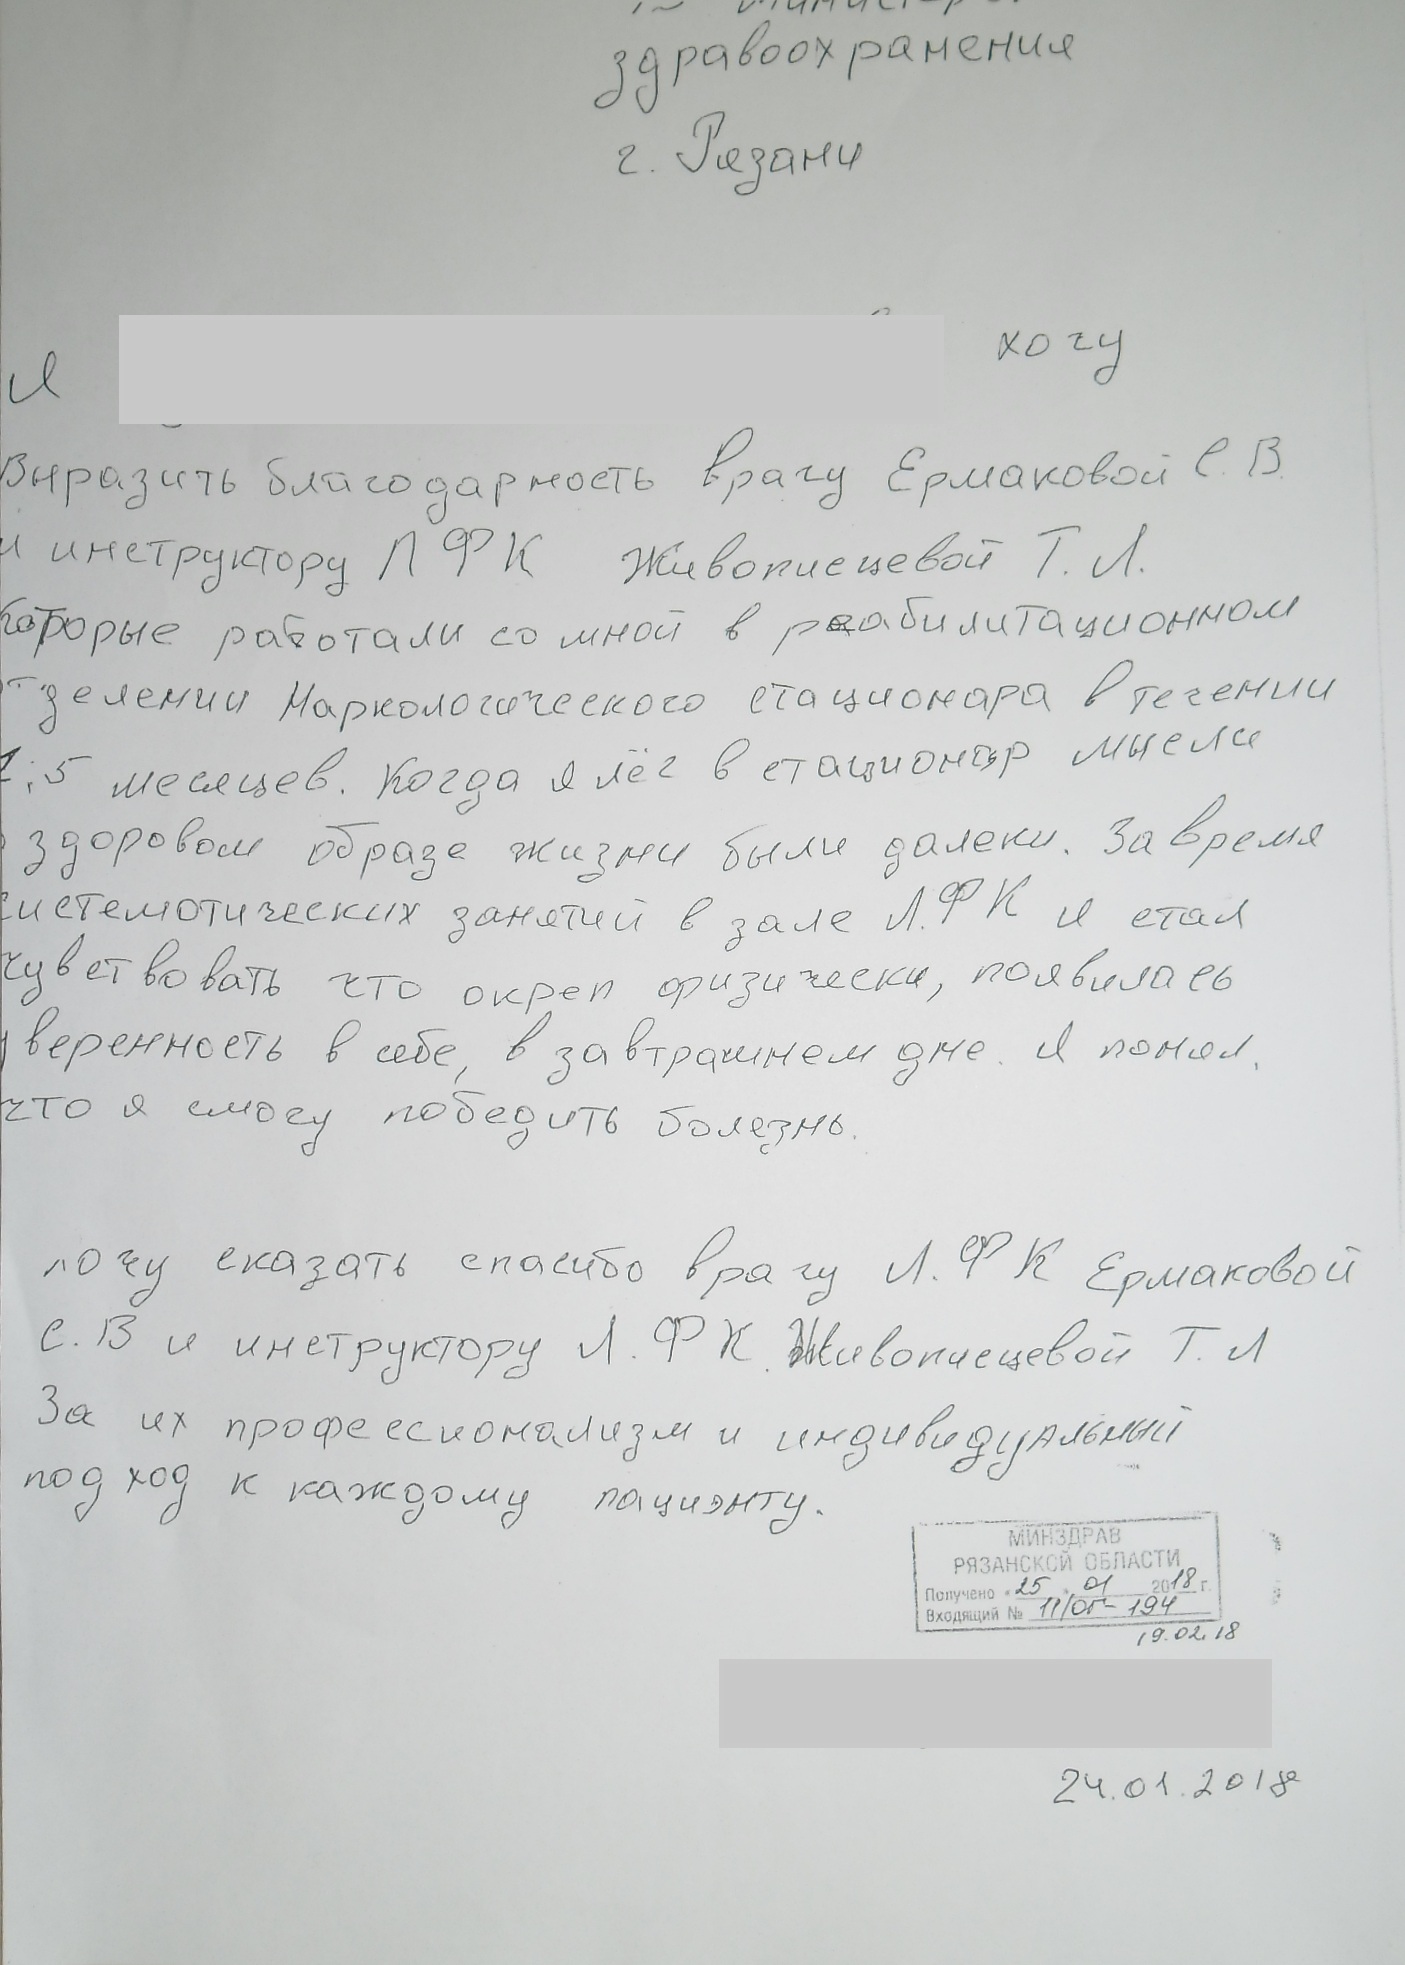 здравоохранения
г. Рязани
Я хочу
Выразить благодарность врачу Ермаковой С. В.
и инструктору ЛФК Живописцевой Т. Л.
которые работали со мной в реабилитационном
отделении Наркологического стационара в течении
месяцев. Когда я лёг в стационар мысли
о здоровом образе жизни были далеки. За время
системотических занятий в зале Л.ФК я стал
чувствовать что окреп физически, появилась
уверенность в себе, в завтрашнем дне. Я понял,
что я смогу победить болезнь.
Хочу сказать спасибо врачу Л.ФК Ермаковой
С. В и инструктору Л.ФК Живописцевой Т. Л
За их профессионализм и индивидуальный
подход к каждому пациэнту.
МИНЗДРАВ
РЯЗАНСКОЙ ОБЛАСТИ
Получено «25» 01 2018 г.
Входящий № 11/ОГ-194
19.02.18
24.01.2018